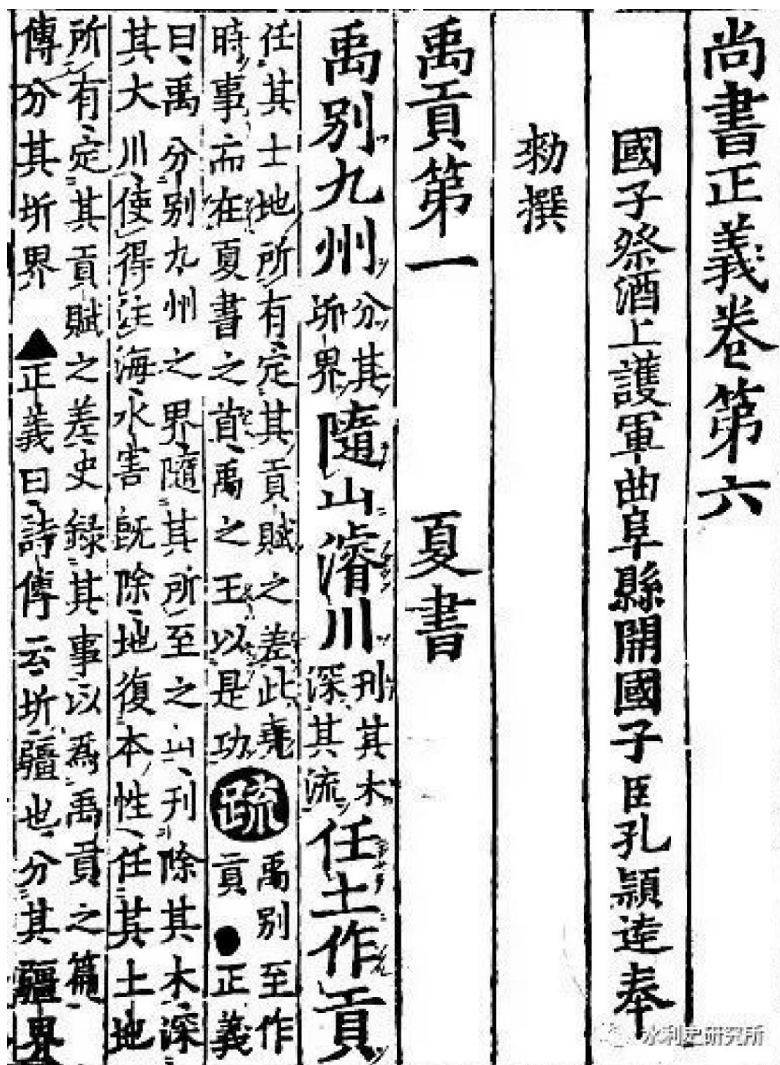 尚書正義卷第六
國子祭酒上護軍曲阜縣開國子臣孔穎達奉
勑撰
禹貢第一 夏書
禹別九州 分其圻界 隨山濬川 刊其木深其流 任土作貢
任其土地所有定其貢賦之差此堯
時事而在夏書之首禹之王以是功 疏 禹別至作貢●正義
曰禹分別九州之界隨其所至之山刊除其木深
其大川使得注海水害既除地復本性任其土地
所有定其貢賦之差史錄其事以爲禹貢之篇
傳分其圻界▲正義曰詩傳云圻疆也分其疆界
水利史研究所